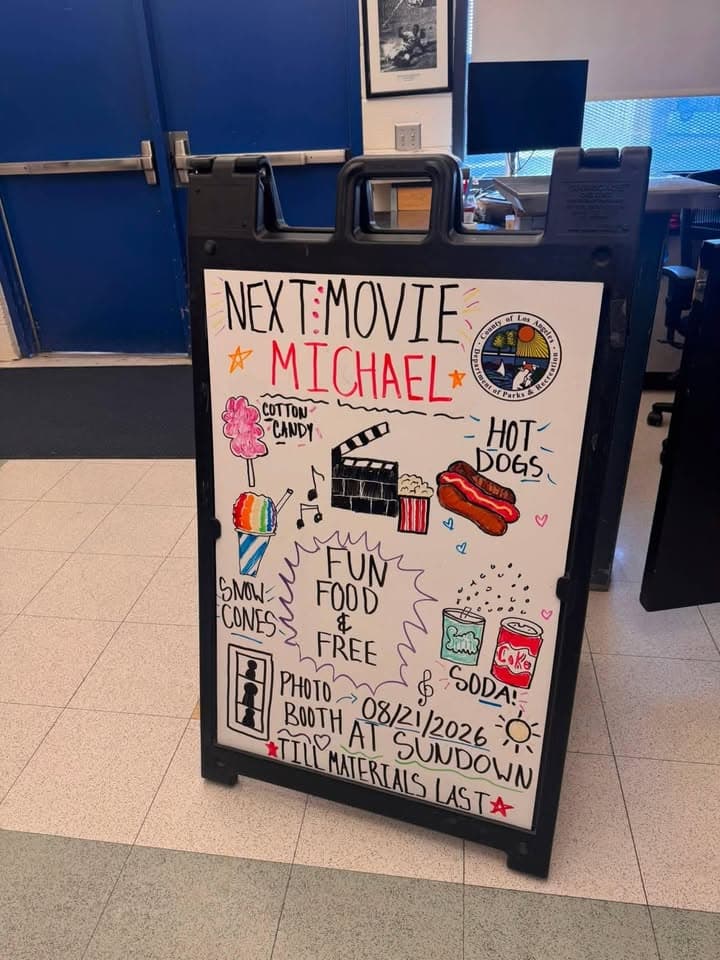 NEXT MOVIE
MICHAEL
County of Los Angeles
Department of Parks & Recreation
COTTON
CANDY
HOT
DOGS
SNOW
CONES
FUN
FOOD
&
FREE
Coke
SODA!
PHOTO
BOOTH
08/21/2026
AT SUNDOWN
TILL MATERIALS LAST